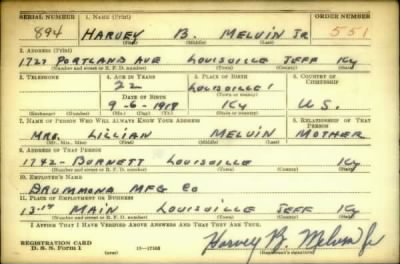 SERIAL NUMBER 1. NAME (Print) ORDER NUMBER
894 HARVEY B. MELVIN JR 551
(First) (Middle) (Last)
2. ADDRESS (Print)
1727 PORTLAND AVE LOUISVILLE JEFF KY
(Number and street or R. F. D. number) (Town) (County) (State)
3. TELEPHONE 4. AGE IN YEARS 5. PLACE OF BIRTH 6. COUNTRY OF CITIZENSHIP
22 LOUISVILLE
DATE OF BIRTH (Town or county)
9-6-1918 KY U.S.
(Exchange) (Number) (Mo.) (Day) (Yr.) (State or country)
7. NAME OF PERSON WHO WILL ALWAYS KNOW YOUR ADDRESS 8. RELATIONSHIP OF THAT PERSON
MRS. LILLIAN MELVIN MOTHER
(Mr., Mrs., Miss) (First) (Middle) (Last)
9. ADDRESS OF THAT PERSON
1742- BURNETT LOUISVILLE KY
(Number and street or R. F. D. number) (Town) (County) (State)
10. EMPLOYER'S NAME
DRUMMOND MFG CO
11. PLACE OF EMPLOYMENT OR BUSINESS
MAIN LOUISVILLE JEFF KY
(Number and street or R. F. D. number) (Town) (County) (State)
I AFFIRM THAT I HAVE VERIFIED ABOVE ANSWERS AND THAT THEY ARE TRUE.
REGISTRATION CARD
D. S. S. Form 1 (over) Harvey B. Melvin Jr
(Registrant's signature)